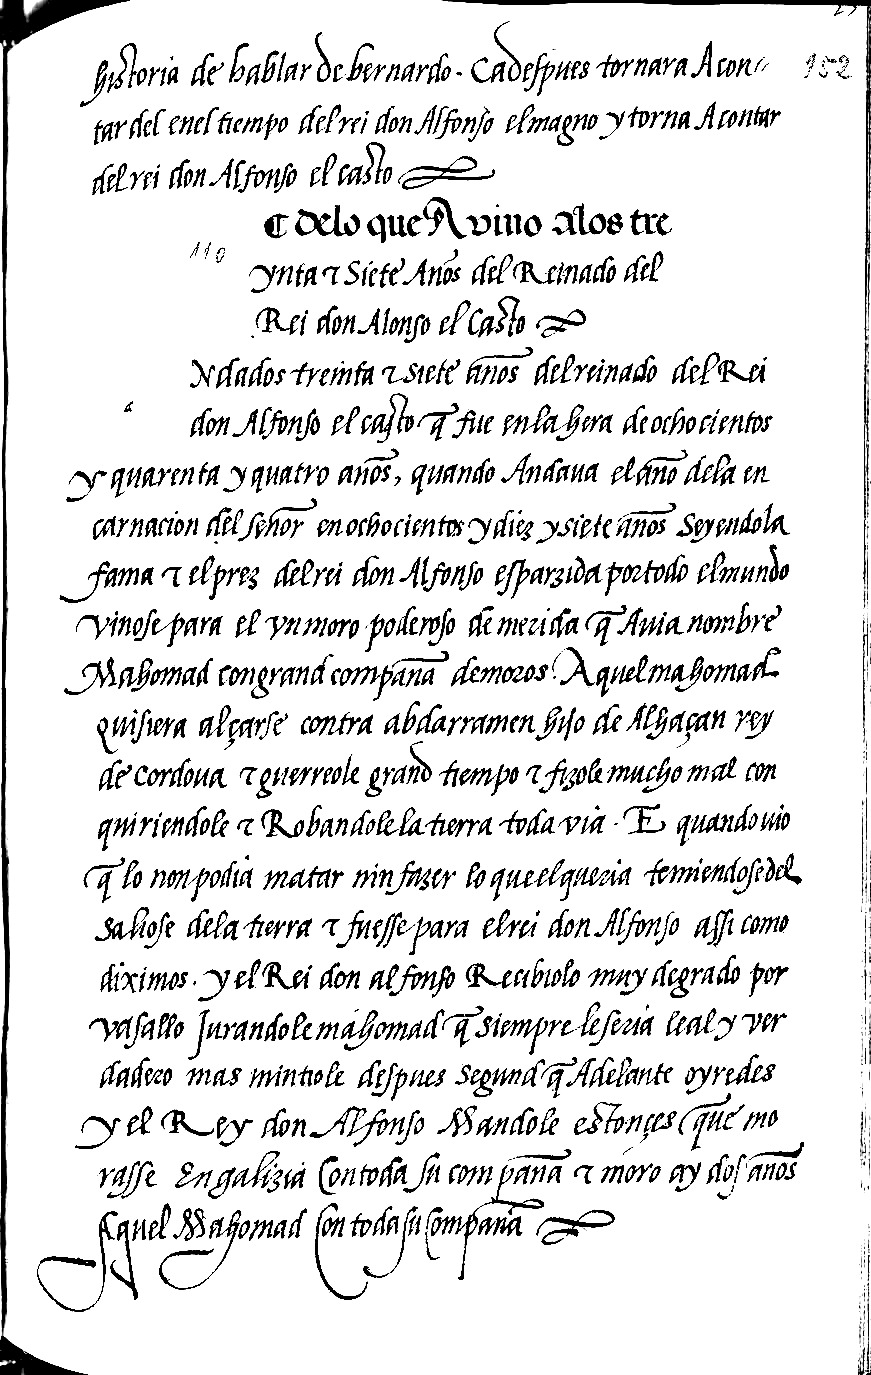 historia de hablar de bernardo. Ca despues tornara A con- 152
tar del enel tiempo del rei don Alfonso el magno y torna A contar
del rei don Alfonso el casto
¶ delo que Avino alos tre
110
ynta τ Siete Años del Reinado del
Rei don Alonso el Casto
Ndados treinta τ siete años del reinado del Rei
don Alfonso el casto q̃ fue en la hera de ochocientos
y quarenta y quatro años, quando Andaua el año dela en
carnacion del señor en ochocientos y diez y siete años Seyendo la
fama τ el prez del rei don Alfonso esparzida por todo el mundo
vinose para el vn moro poderoso de merida q̃ Auia nombre
Mahomad con grand compaña de moros. Aquel mahomad
quisiera alçarse contra abdarramen hijo de Alhaçan rey
de Cordoua τ guerreole grand tiempo τ fizole mucho mal con
quiriendole τ Robandole la tierra toda via. E quando uio
q̃ lo non podia matar nin fazer lo que el queria temiendose del
saliose dela tierra τ fuesse para el rei don Alfonso assi como
diximos. y el Rei don alfonso Recibiolo muy degrado por
vasallo Jurandole mahomad q̃ siempre le seria leal y ver
dadero mas mintiole despues segund q̃ Adelante oyredes
y el Rey don Alfonso Mandole estonçes que mo
rasse En galizia Con toda su compaña τ moro ay dos años
Aquel Mahomad Con toda su Compaña